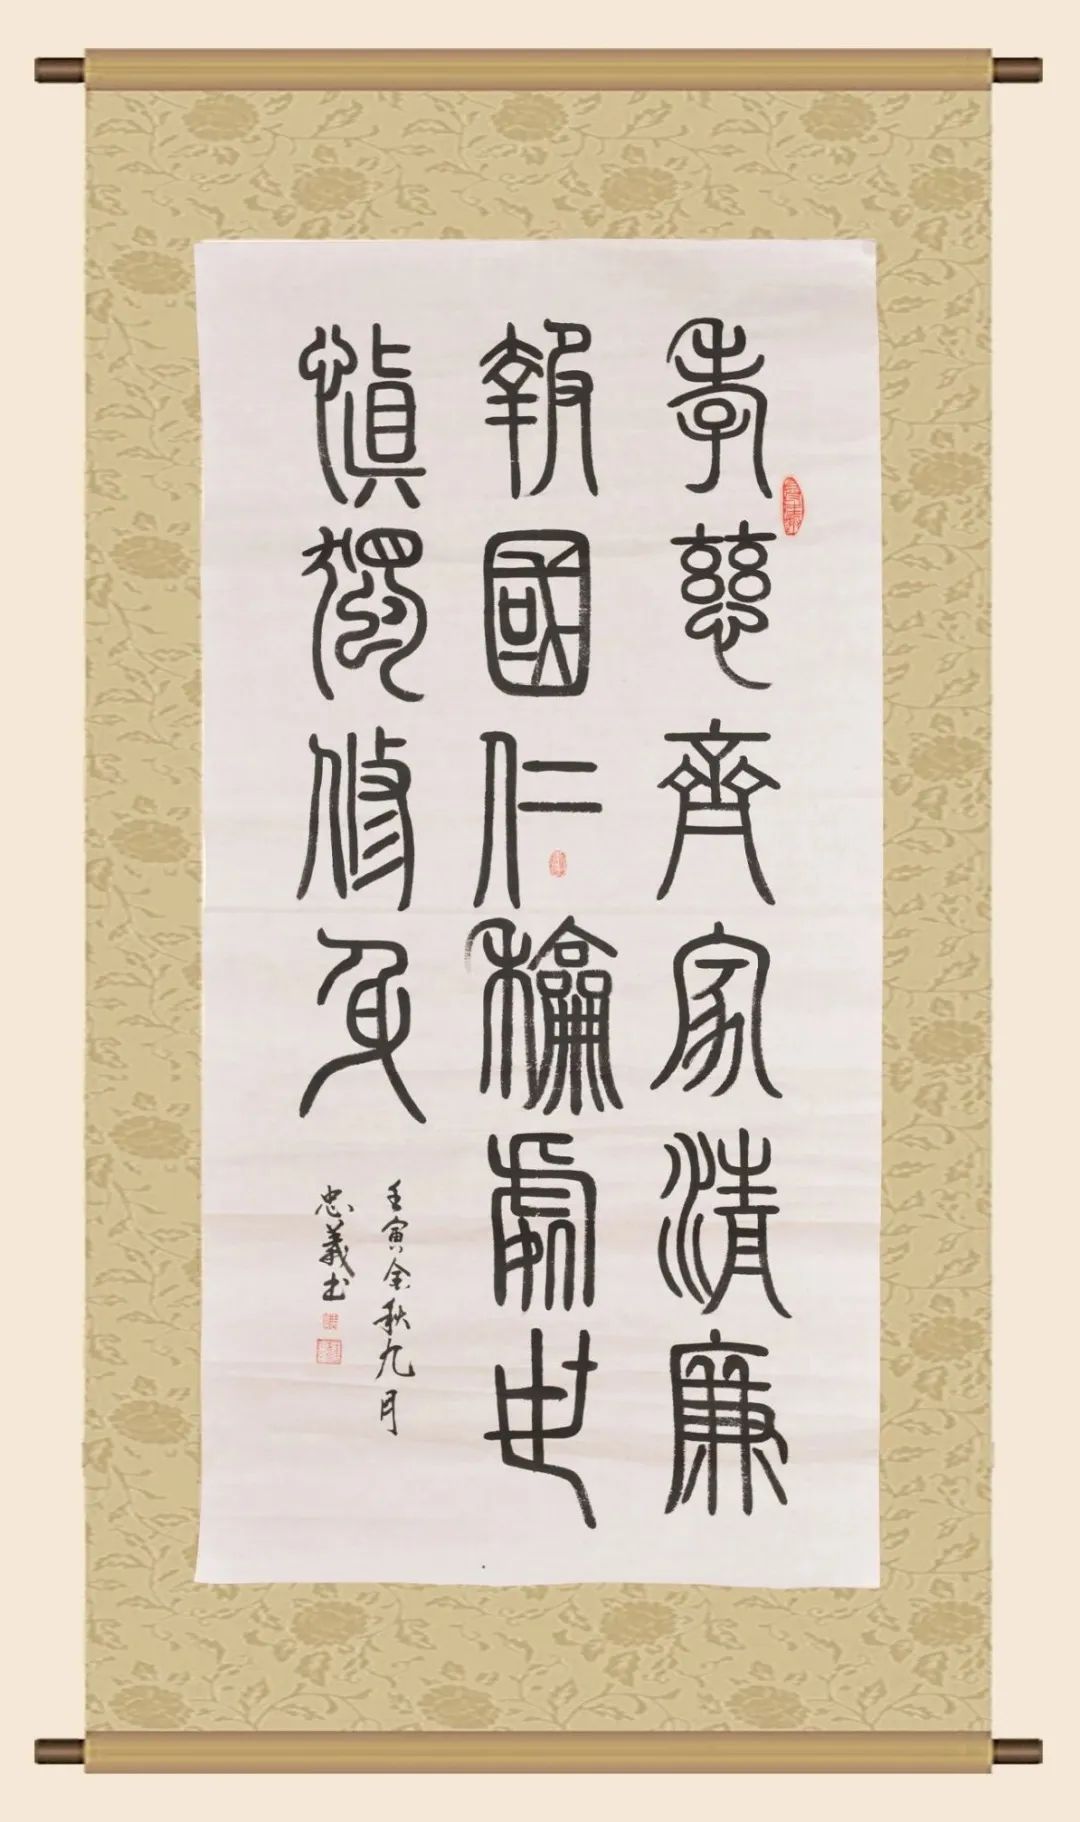 孝慈齊家清廉
報國仁龢處世
慎獨修身
壬寅金秋九月
忠義书